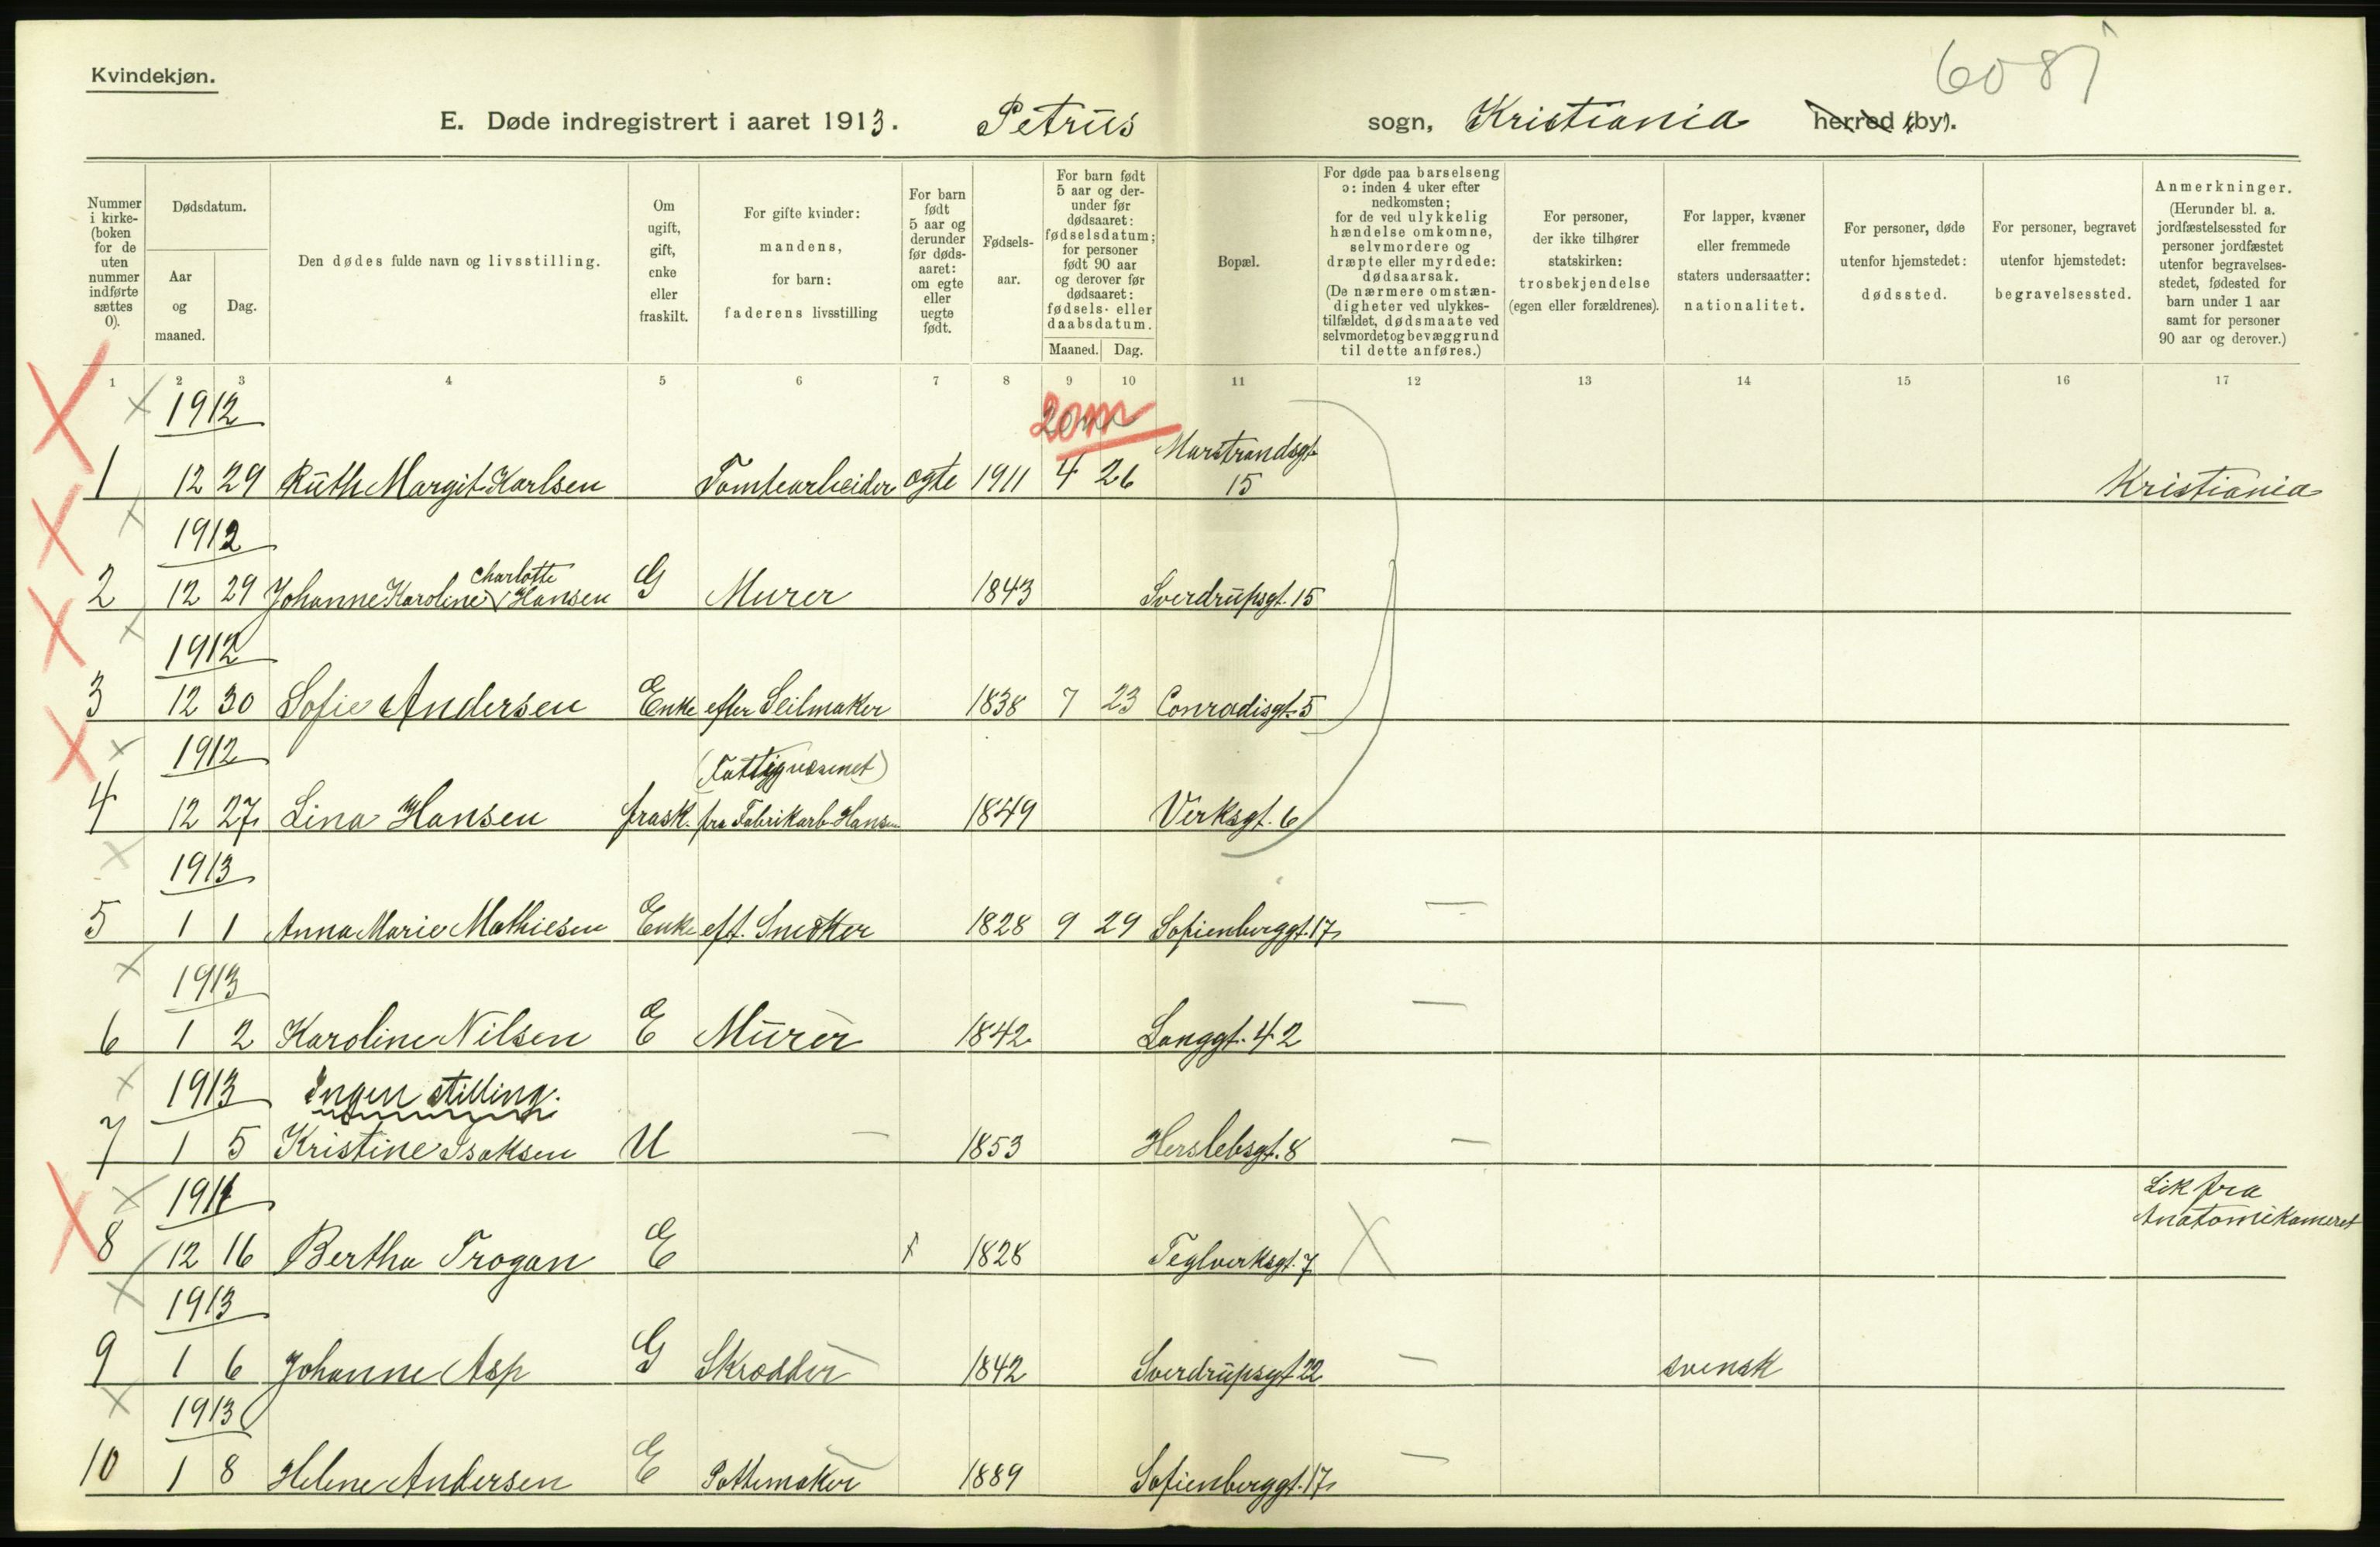 6081
Kvindekjøn.
E. Døde indregistrert i aaret 1913. Petrus sogn, Kristiania herred (by).
Nummer i kirke-(boken for de uten nummer indførte sættes 0).
Dødsdatum.
Aar og maaned.
Dag.
Den dødes fulde navn og livsstilling.
Om ugift, gift, enke eller fraskilt.
For gifte kvinder: mandens, for barn: faderens livsstilling
For barn født 5 aar og derunder før døds-aaret: om egte eller uegte født.
Fødsels-aar.
For barn født 5 aar og der-under før dødsaaret: fødselsdatum; for personer født 90 aar og derover før dødsaaret: fødsels- eller daabsdatum.
Maaned. Dag.
Bopæl.
For døde paa barselseng ɔ: inden 4 uker efter nedkomsten; for de ved ulykkelig hændelse omkomne, selvmordere og dræpte eller myrdede: dødsaarsak. (De nærmere omstæn-digheter ved ulykkes-tilfældet, dødsmaate ved selvmordet og bevæggrund til dette anføres.)
For personer, der ikke tilhører statskirken: trosbekjendelse (egen eller forældrenes).
For lapper, kvæner eller fremmede staters undersaatter: nationalitet.
For personer, døde utenfor hjemstedet: dødssted.
For personer, begravet utenfor hjemstedet: begravelsessted.
Anmerkninger. (Herunder bl. a. jordfæstelsessted for personer jordfæstet utenfor begravelses-stedet, fødested for barn under 1 aar samt for personer 90 aar og derover.)
1 2 3 4 5 6 7 8 9 10 11 12 13 14 15 16 17
1912 20m
1 12 29 Ruth Margit Karlsen Tomtearbeider ægte 1911 4 26 Marstrandsgt. 15 Kristiania
1912
2 12 29 Johanne Karoline Charlotte Hansen G Murer 1843 Sverdrupsgt. 15
1912
3 12 30 Sofie Andersen Enke efter Seilmaker 1838 7 23 Conradisgt. 5
1912 (Fattigvæsenet)
4 12 27 Lina Hansen frask. fra Fabrikarb. Hansen 1849 Verksgt. 6
1913
5 1 1 Anna Marie Mathiesen Enke eft. Snekker 1828 9 29 Sofienberggt. 17 —
1913
6 1 2 Karoline Nilsen E Murer 1842 Langgt. 42 —
1913 Ingen stilling.
7 1 5 Kristine Isaksen U — 1853 Herslebsgt. 8 —
1911 Lik fra Anatomikameret
8 12 16 Bertha Trogan E 1828 Teglverksgt. 7
1913
9 1 6 Johanne Asp G Skrædder 1842 Sverdrupsgt 22 — svensk
1913
10 1 8 Helene Andersen E Pottemaker 1889 Sofienberggt. 17 —